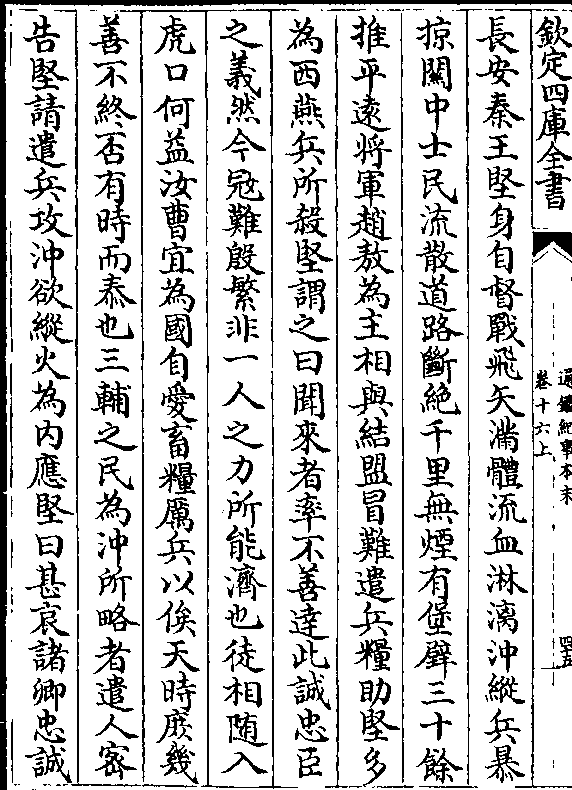 欽定四庫全書
通鑑紀事本末
卷十六上
四五
長安秦王堅身自督戰飛矢滿體流血淋漓沖縱兵暴
掠關中士民流散道路斷絶千里無煙有堡壁三十餘
推平逺將軍趙敖為主相與結盟冒難遣兵糧助堅多
為西燕兵所殺堅謂之曰聞來者率不善達此誠忠臣
之義然今冦難殷繁非一人之力所能濟也徒相随入
虎口何益汝曹宜為國自愛畜糧厲兵以俟天時庶幾
善不終否有時而泰也三輔之民為沖所略者遣人宻
告堅請遣兵攻沖欲縱火為内應堅曰甚哀諸卿忠誠